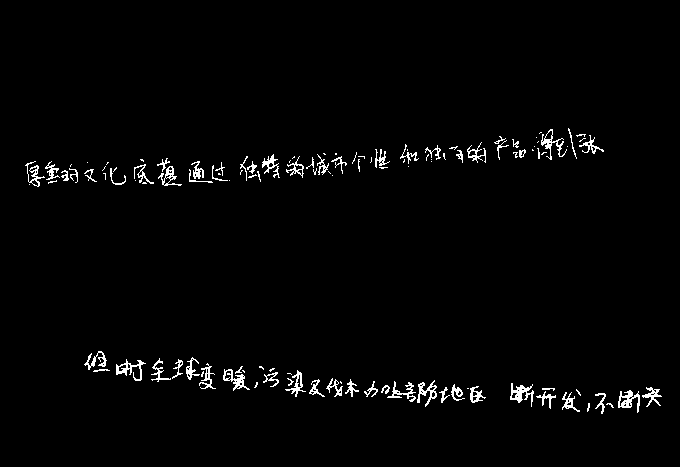 厚重的文化底蕴通过独特的城市个性和独有的产品得到张
但由于全球变暖，污染及伐木加上部阶地区 断开发，不断突